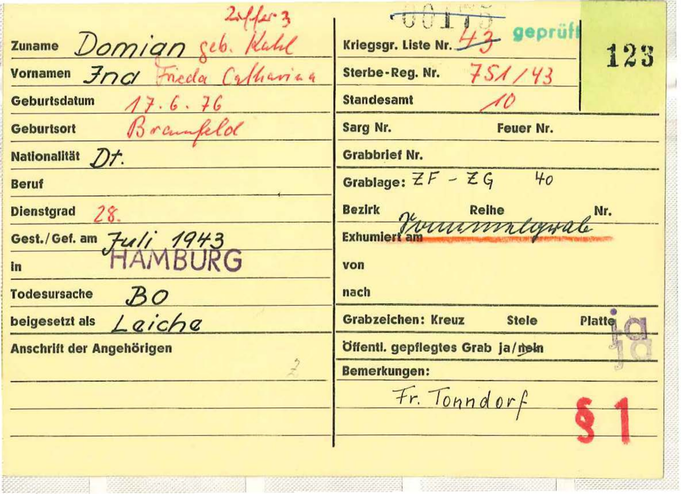 Ziffer 3
Zuname Domian geb. Kahl
Vornamen Ina Frieda Catharina
Geburtsdatum 17.6.76
Geburtsort Bramfeld
Nationalität Dt.
Beruf
Dienstgrad 28.
Gest./Gef. am Juli 1943
in HAMBURG
Todesursache BO
beigesetzt als Leiche
Anschrift der Angehörigen
2
00175
Kriegsgr. Liste Nr. 43 geprüft
123
Sterbe-Reg. Nr. 751/43
Standesamt 10
Sarg Nr. Feuer Nr.
Grabbrief Nr.
Grablage: ZF - ZG 40
Bezirk Reihe Nr.
Sammelgrab
Exhumiert am
von
nach
Grabzeichen: Kreuz Stele Platte ja
Öffentl. gepflegtes Grab ja/nein ja
Bemerkungen:
Fr. Tonndorf
§ 1